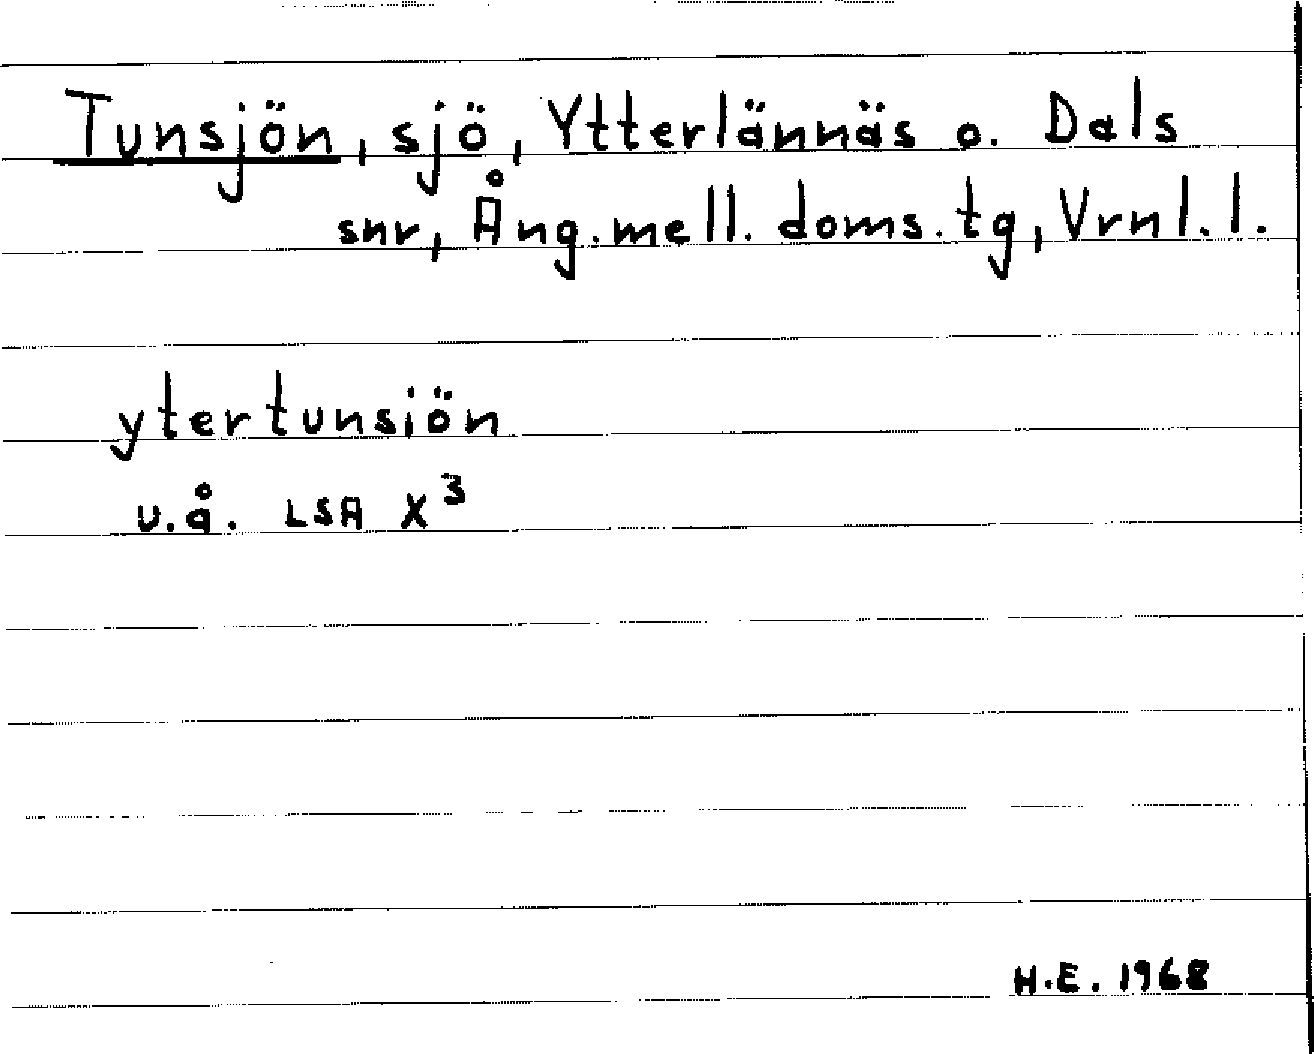 Tunsjön, sjö, Ytterlännäs o. Dals
snr, Ång.mell. doms.tg, Vrnl.l.
ytertunsiön
u.å. LSA X³
H.E. 1968